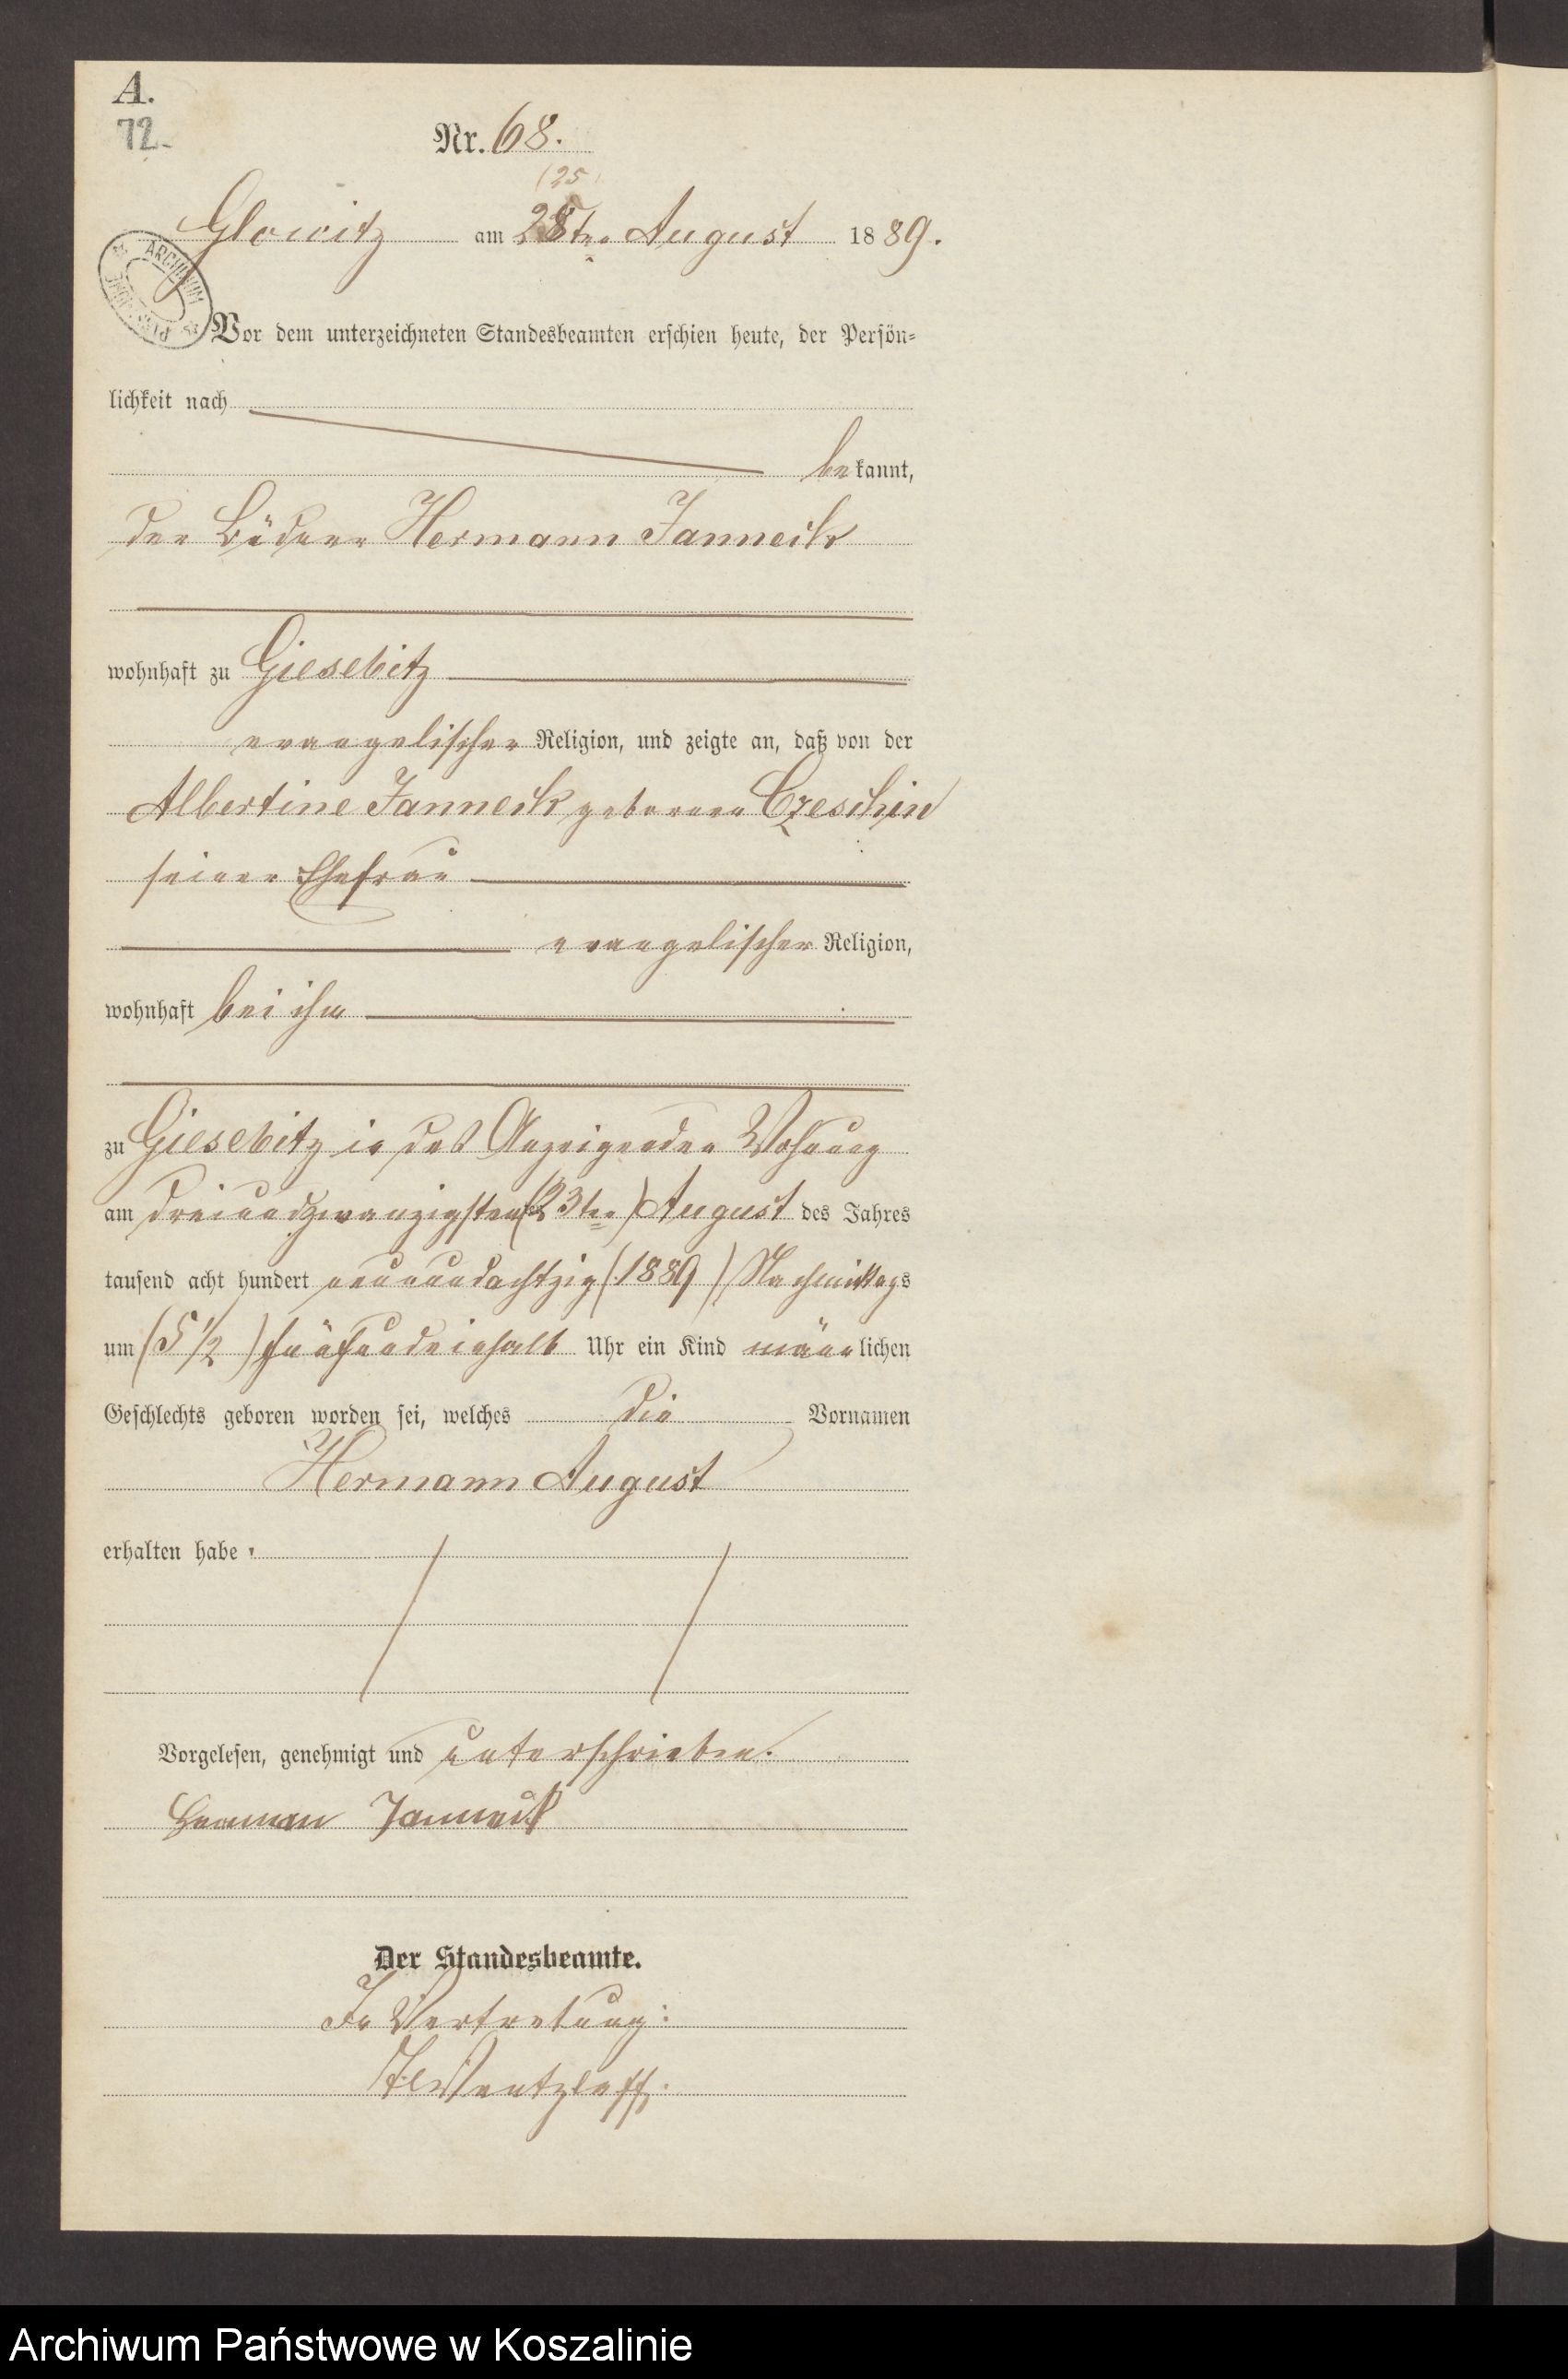 A.
72.
Nr. 68.
(25)
Glowitz am 25ten August 1889.
ARCHIWUM
Vor dem unterzeichneten Standesbeamten erschien heute, der Persön=
lichkeit nach
bekannt,
der Büdner Hermann Janneck
wohnhaft zu Giesebitz
evangelischer Religion, und zeigte an, daß von der
Albertine Janneck geborenen Czeschin
seiner Ehefrau
evangelischer Religion,
wohnhaft bei ihm
zu Giesebitz in des Anzeigenden Wohnung
am dreiundzwanzigsten (23ten) August des Jahres
tausend acht hundert neunundachtzig (1889) Nachmittags
um (5 1/2) fünfundeinhalb Uhr ein Kind männlichen
Geschlechts geboren worden sei, welches die Vornamen
Hermann August
erhalten habe.
Vorgelesen, genehmigt und unterschrieben.
Herman Janneck
Der Standesbeamte.
In Vertretung:
Wentzlaff.
Archiwum Państwowe w Koszalinie